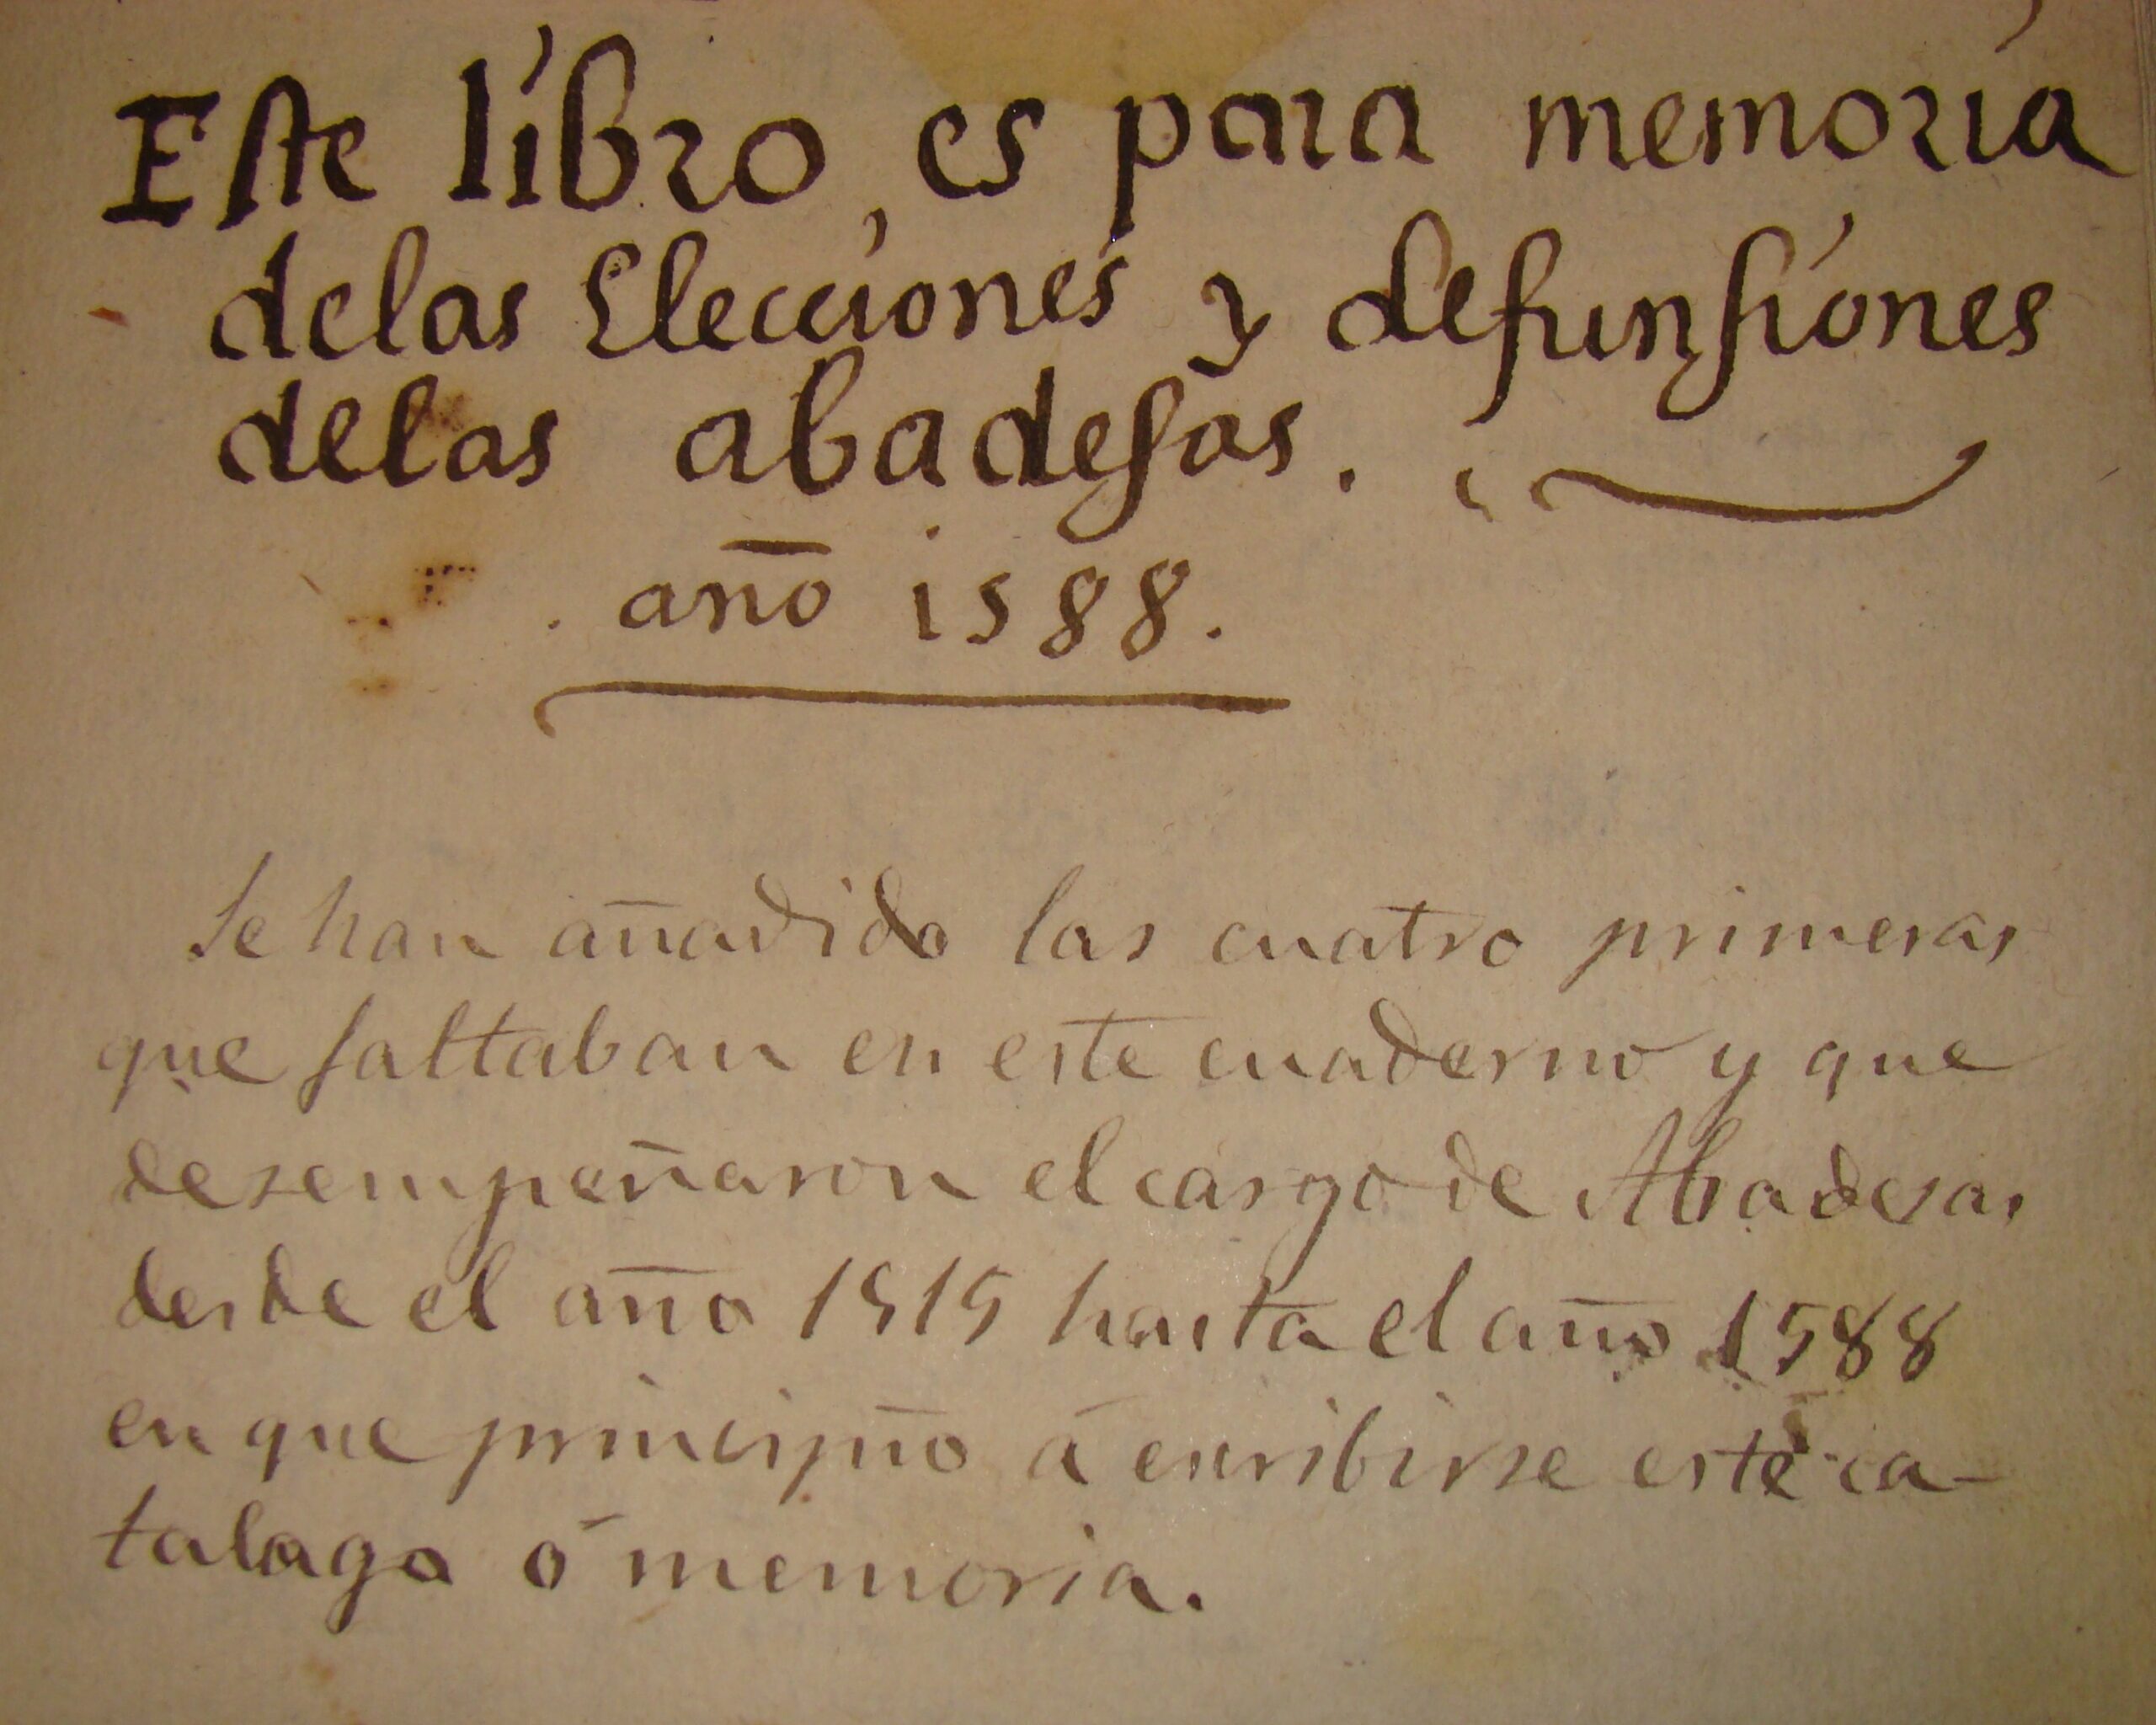 Este libro, es para memoria
delas Elecciones y defunsiones
delas abadesas.
año 1588.
Se han añadido las cuatro primeras
que faltaban en este cuaderno y que
desempeñaron el cargo de Abadesas
desde el año 1515 hasta el año 1588
en que principio á escribirse este ca-
talago ó memoria.